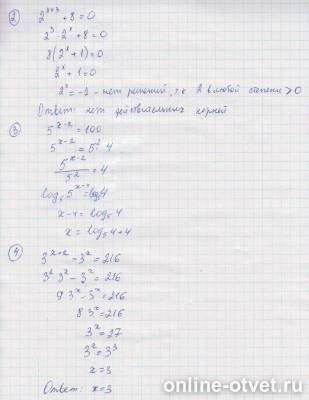 ② 2^(x+3) + 8 = 0
2³ · 2ˣ + 8 = 0
8(2ˣ + 1) = 0
2ˣ + 1 = 0
2ˣ = -1 - нет решений, т.к 2 в любой степени > 0
Ответ: нет действительных корней
③ 5^(x-2) = 100
5^(x-2) = 5² · 4
5^(x-2) / 5² = 4
log₅ 5^(x-4) = log₅ 4
x - 4 = log₅ 4
x = log₅ 4 + 4
④ 3^(x+2) - 3ˣ = 216
3² 3ˣ - 3ˣ = 216
9 3ˣ - 3ˣ = 216
8 3ˣ = 216
3ˣ = 27
3ˣ = 3³
x = 3
Ответ: x = 3
online-otvet.ru